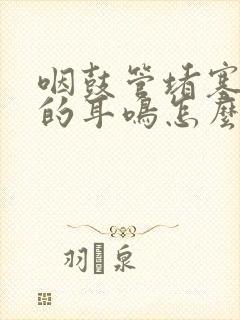 咽鼓管堵塞
的耳鸣怎麽
羽泉